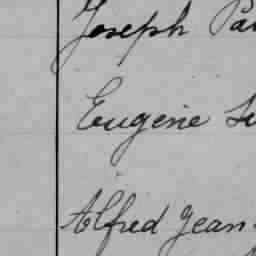 Joseph
Eugenie
Alfred Jean